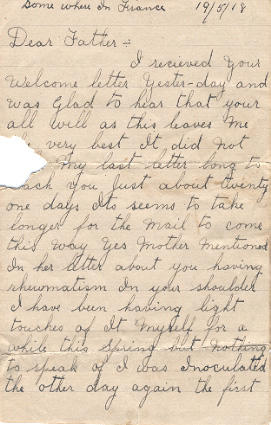 Some where In France 19/5/18
Dear Father :-
I recieved Your
Welcome letter Yester-day and
was Glad to hear that your
all well as this leaves Me
very best It did not
My last letter long to
each You just about twenty
one days Its seems to take
longer for the Mail to come
this Way Yes Mother Mentioned
In her letter about you having
rheumatism In your shoulder
I have been having light
touches of It Myself for a
while this Spring but nothing
to speak of I was Inoculated
the other day again the first